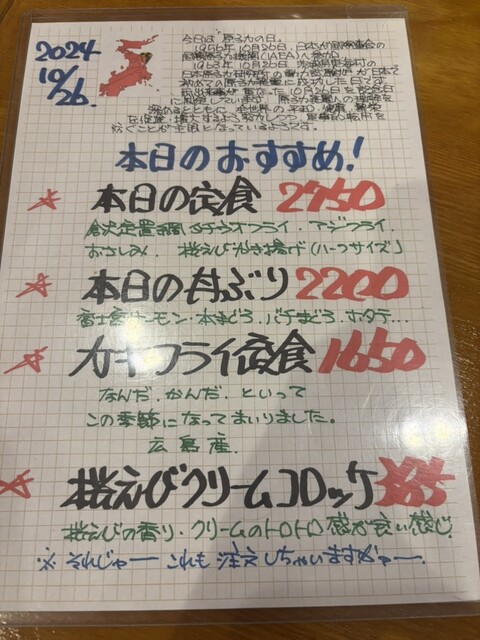 2024
10/26.
今日は 原子力の日。
1956年10月26日、日本が国際連合の
国際原子力機関(IAEA)へ参加
1963年10月26日、茨城県東海村の
日本原子力研究所の動力試験炉が日本で
初めての原子力発電に成功した日です
10月26日を記念日
に制定しています
本日のおすすめ!
☆ 本日の定食 2750
倉沢定置網 カチウオフライ・アジフライ
おさしみ、桜えびかき揚げ(ハーフサイズ)
☆ 本日の丼ぶり 2200
富士宮サーモン・本まぐろ、バチまぐろ、ホタテ...
☆ カキフライ定食 1650
なんだ、かんだ、といって
この季節になってまいりました。
広島産
☆ 桜えびクリームコロッケ 385
桜えびの香り・クリームのトロトロ感が良い感じ。
※ それじゃー これも注文しちゃいますかァー。